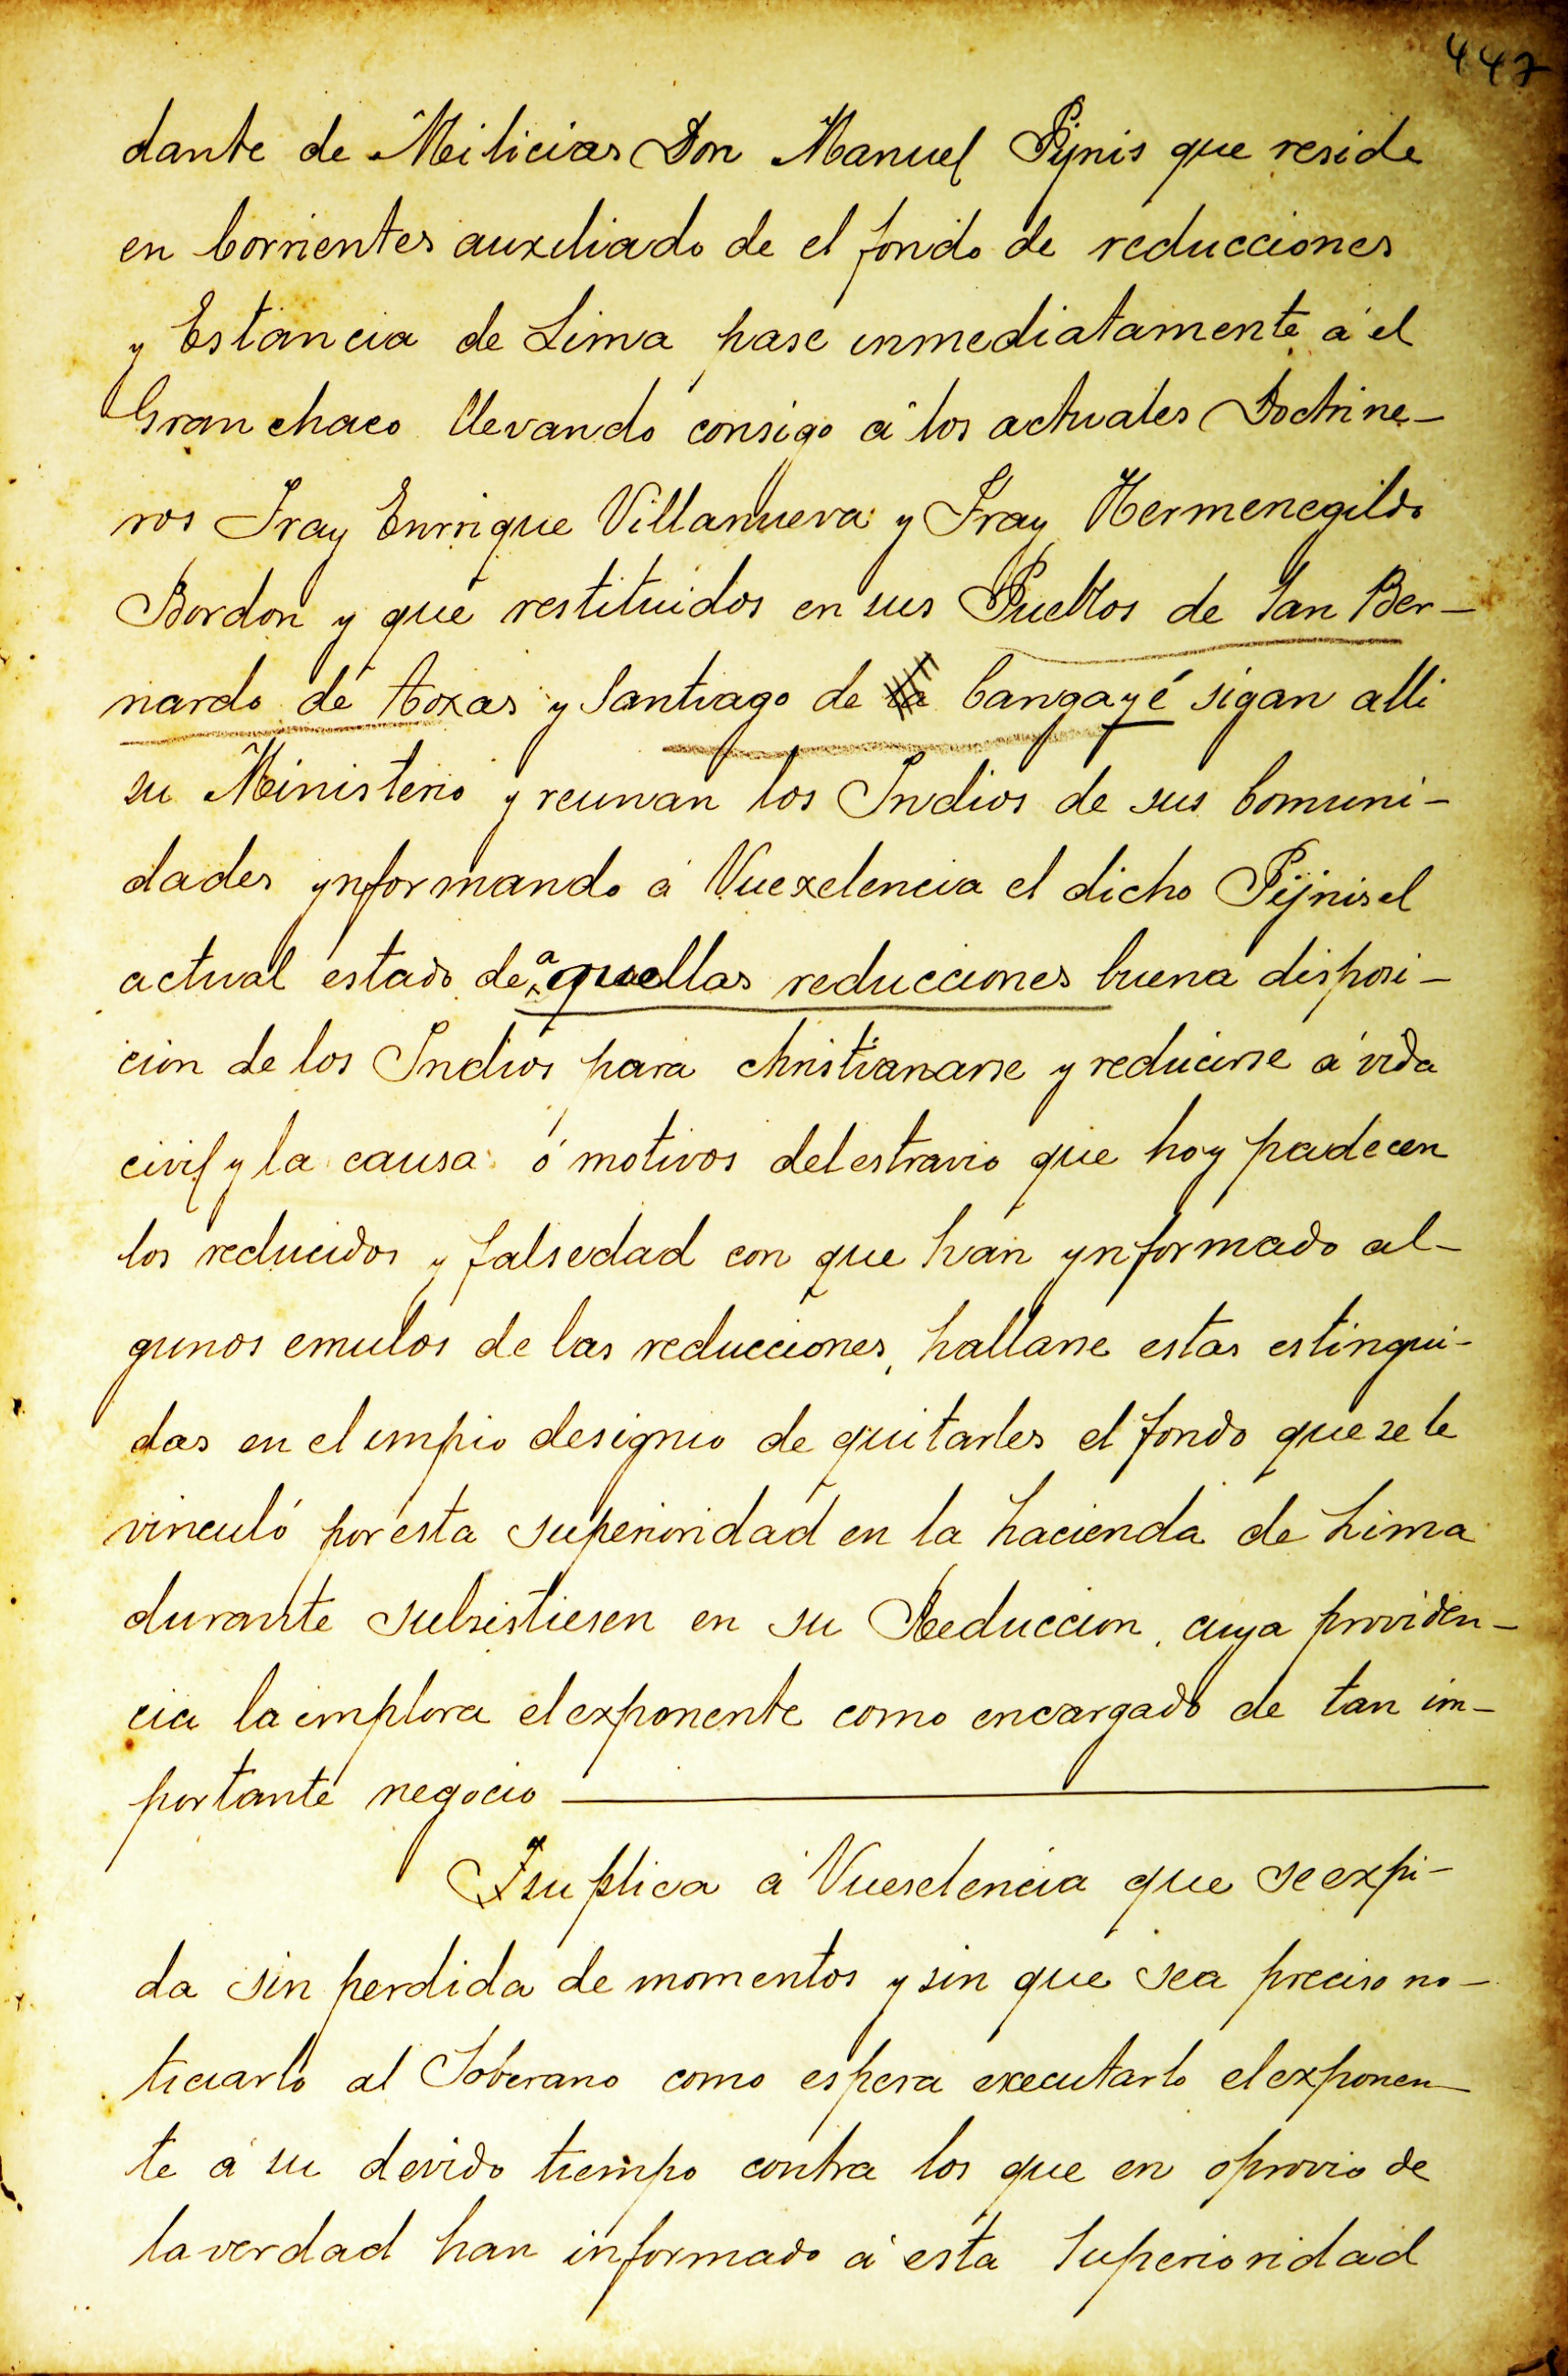 447
dante de Milicias Don Manuel Pijnis que reside
en Corrientes auxiliado de el fondo de reducciones
y Estancia de Lima pase inmediatamente á el
Gran chaco llevando consigo á los actuales Doctrine-
ros Fray Enrrique Villanueva y Fray Hermenegildo
Bordon y que restituidos en sus Pueblos de San Ber-
nardo de Aoxas y Santiago de la Cangayé sigan alli
su Ministerio y reunan los Indios de sus Comuni-
dades ynformando á Vuexelencia el dicho Pijnis el
actual estado de aquellas reducciones buena disposi-
cion de los Indios para christianarse y reducirse á vida
civil y la causa ó motivos del estravio que hoy padecen
los reducidos y falsedad con que han ynformado al-
gunos emulos de las reducciones, hallarse estas estingui-
das en el impio designio de quitarles el fondo que se le
vinculó por esta superioridad en la hacienda de Lima
durante subsistiesen en su Reduccion, cuya providen-
cia la implora el exponente como encargado de tan im-
portante negocio
Y suplica á Vueselencia que se expi-
da sin perdida de momentos y sin que sea preciso no-
ticiarlo al Soberano como espera executarlo el exponen-
te á su devido tiempo contra los que en oprovio de
la verdad han informado á esta Superioridad